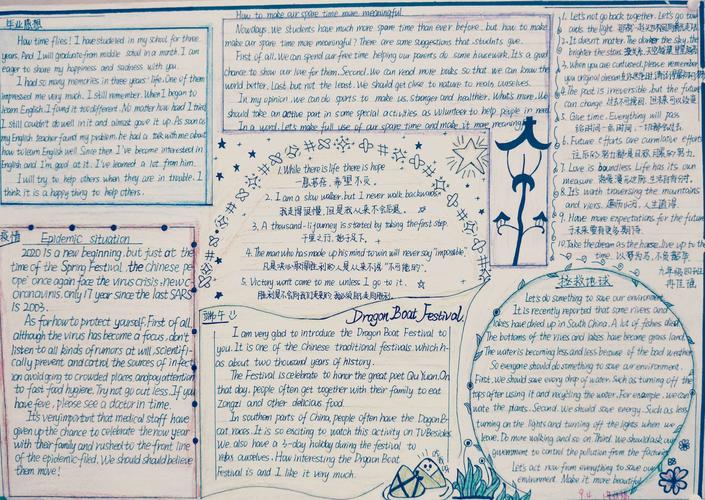 毕业感想
How time flies! I have studied in my school for three
years. And I will graduate from middle school in a month. I am
eager to share my happiness and sadness with you.
I had so many memories in three years' life. One of them
impressed me very much. I still remember. When I began to
learn English I found it too different. No matter how hard I tried,
I still couldn't do well in it and almost gave it up. As soon as
my English teacher found my problem, he had a talk with me about
how to learn English well. Since then I've become interested in
English and I'm good at it. I've learned a lot from him.
I will try to help others when they are in trouble. I
think it is a happy thing to help others.
How to make our spare time more meaningful
Nowdays. We students have much more spare time than ever before. but how to make
make our spare time more meaningful? There are some suggestions that students give.
First of all. We can spend our free time helping our parents do some housework. It's a good
chance to show our love for them. Second. We can read more books so that we can know the
world better. Last but not the least. We should get close to nature to relax ourselves.
In my opinion. we can do sports to make us stronger and healthier. What's more. We
should take an active part in some special activities as volunteer to help people in need
In a word. Let's make full use of our spare time and make it more meaningful
1. Let's not go back together. Let's go
ands the light.
2. It doesn't matter. The darker the sky, the
brighter the stars.
3. when you are confused, please remember
you original dream
4. The past is irreversible but the future
can change
5. Give time. Everything will pass
给时间一点时间，一切都会过去.
6. Future efforts are cumulative efforts
往后的努力都是
7. Love is boundless Life has its own
measure
8. It's worth traversing the mountains
and rivers.
9. Have more expectations for the future
10. Take the dream as the horse, live up to the
time 以梦为马，不负韶华
1. While there is life there is hope
一息若存，希望不灭.
2. I am a slow walker, but I never walk backwards
我走得很慢，但是我从来不会后退.
3. A thousand-li journey is started by taking the first step.
千里之行，始于足下.
4. The man who has made up his mind to win will never say "impossible".
凡是决心取得胜利的人是从来不说"不可能的".
5. Victory won't come to me unless I go to it.
胜利是不会向我们走来的
疫情 Epidemic situation
2020 is a new beginning. but just at the
time of the Spring Festival. the chinese pe
ope' once again face the virus crisis, new c
oronavirus, only 17 year since the last SARS
is 2003.
As for how to protect yourself. First of all,
although the virus has become a focus, don't
listen to all kinds of rumors at will scientifi-
cally prevent and control the sources of infect
ion avoid going to crowded places, and pay attention
to fast food hygiene. Try not go out less. If you
have feve, please see a doctor in time.
It's very important that medical staff have
given up the chance to celebrate the new year
with their family and rushed to the front line
of the epidemic-filed. We should should believe
them move!
端午
Dragon Boat Festival.
I am very glad to introduce the Dragon Boat Festival to
you. It is one of the Chinese traditional festivals. which h-
as about two thousand years of history.
The Festival is celebrate to honor the great poet Qu Yuan. On
that day. people often get together with their family to eat
Zongzi and other delicious food.
In southern parts of China, people often have the Dragon B-
oat races. It is so exciting to watch this activity on TV. Besides
We also have a 3-day holiday during the festival to
relax ourselves. How interesting the Drgaon Boat
Festival is and I like it very much.
拯救地球
Let's do something to save our environment
It is recently reported that some rivers and
lakes have dried up in South China. A lot of fishes died
The bottoms of the rives and lakes have become grass land.
The water is becoming less and less because of the bad weather
So everyone should do something to save our environment.
First. We should save every drop of water. Such as turning off the
taps after using it and recycling the water. For example. we can
water the plants. Second. We should save energy. Such as less
turning on the lights and turning off the lights when we
leave. Do more walking and so on. Third. We should ask our
government to control the pollution from the factories
Let's act now from everything to save our
environment. Make it more beautiful